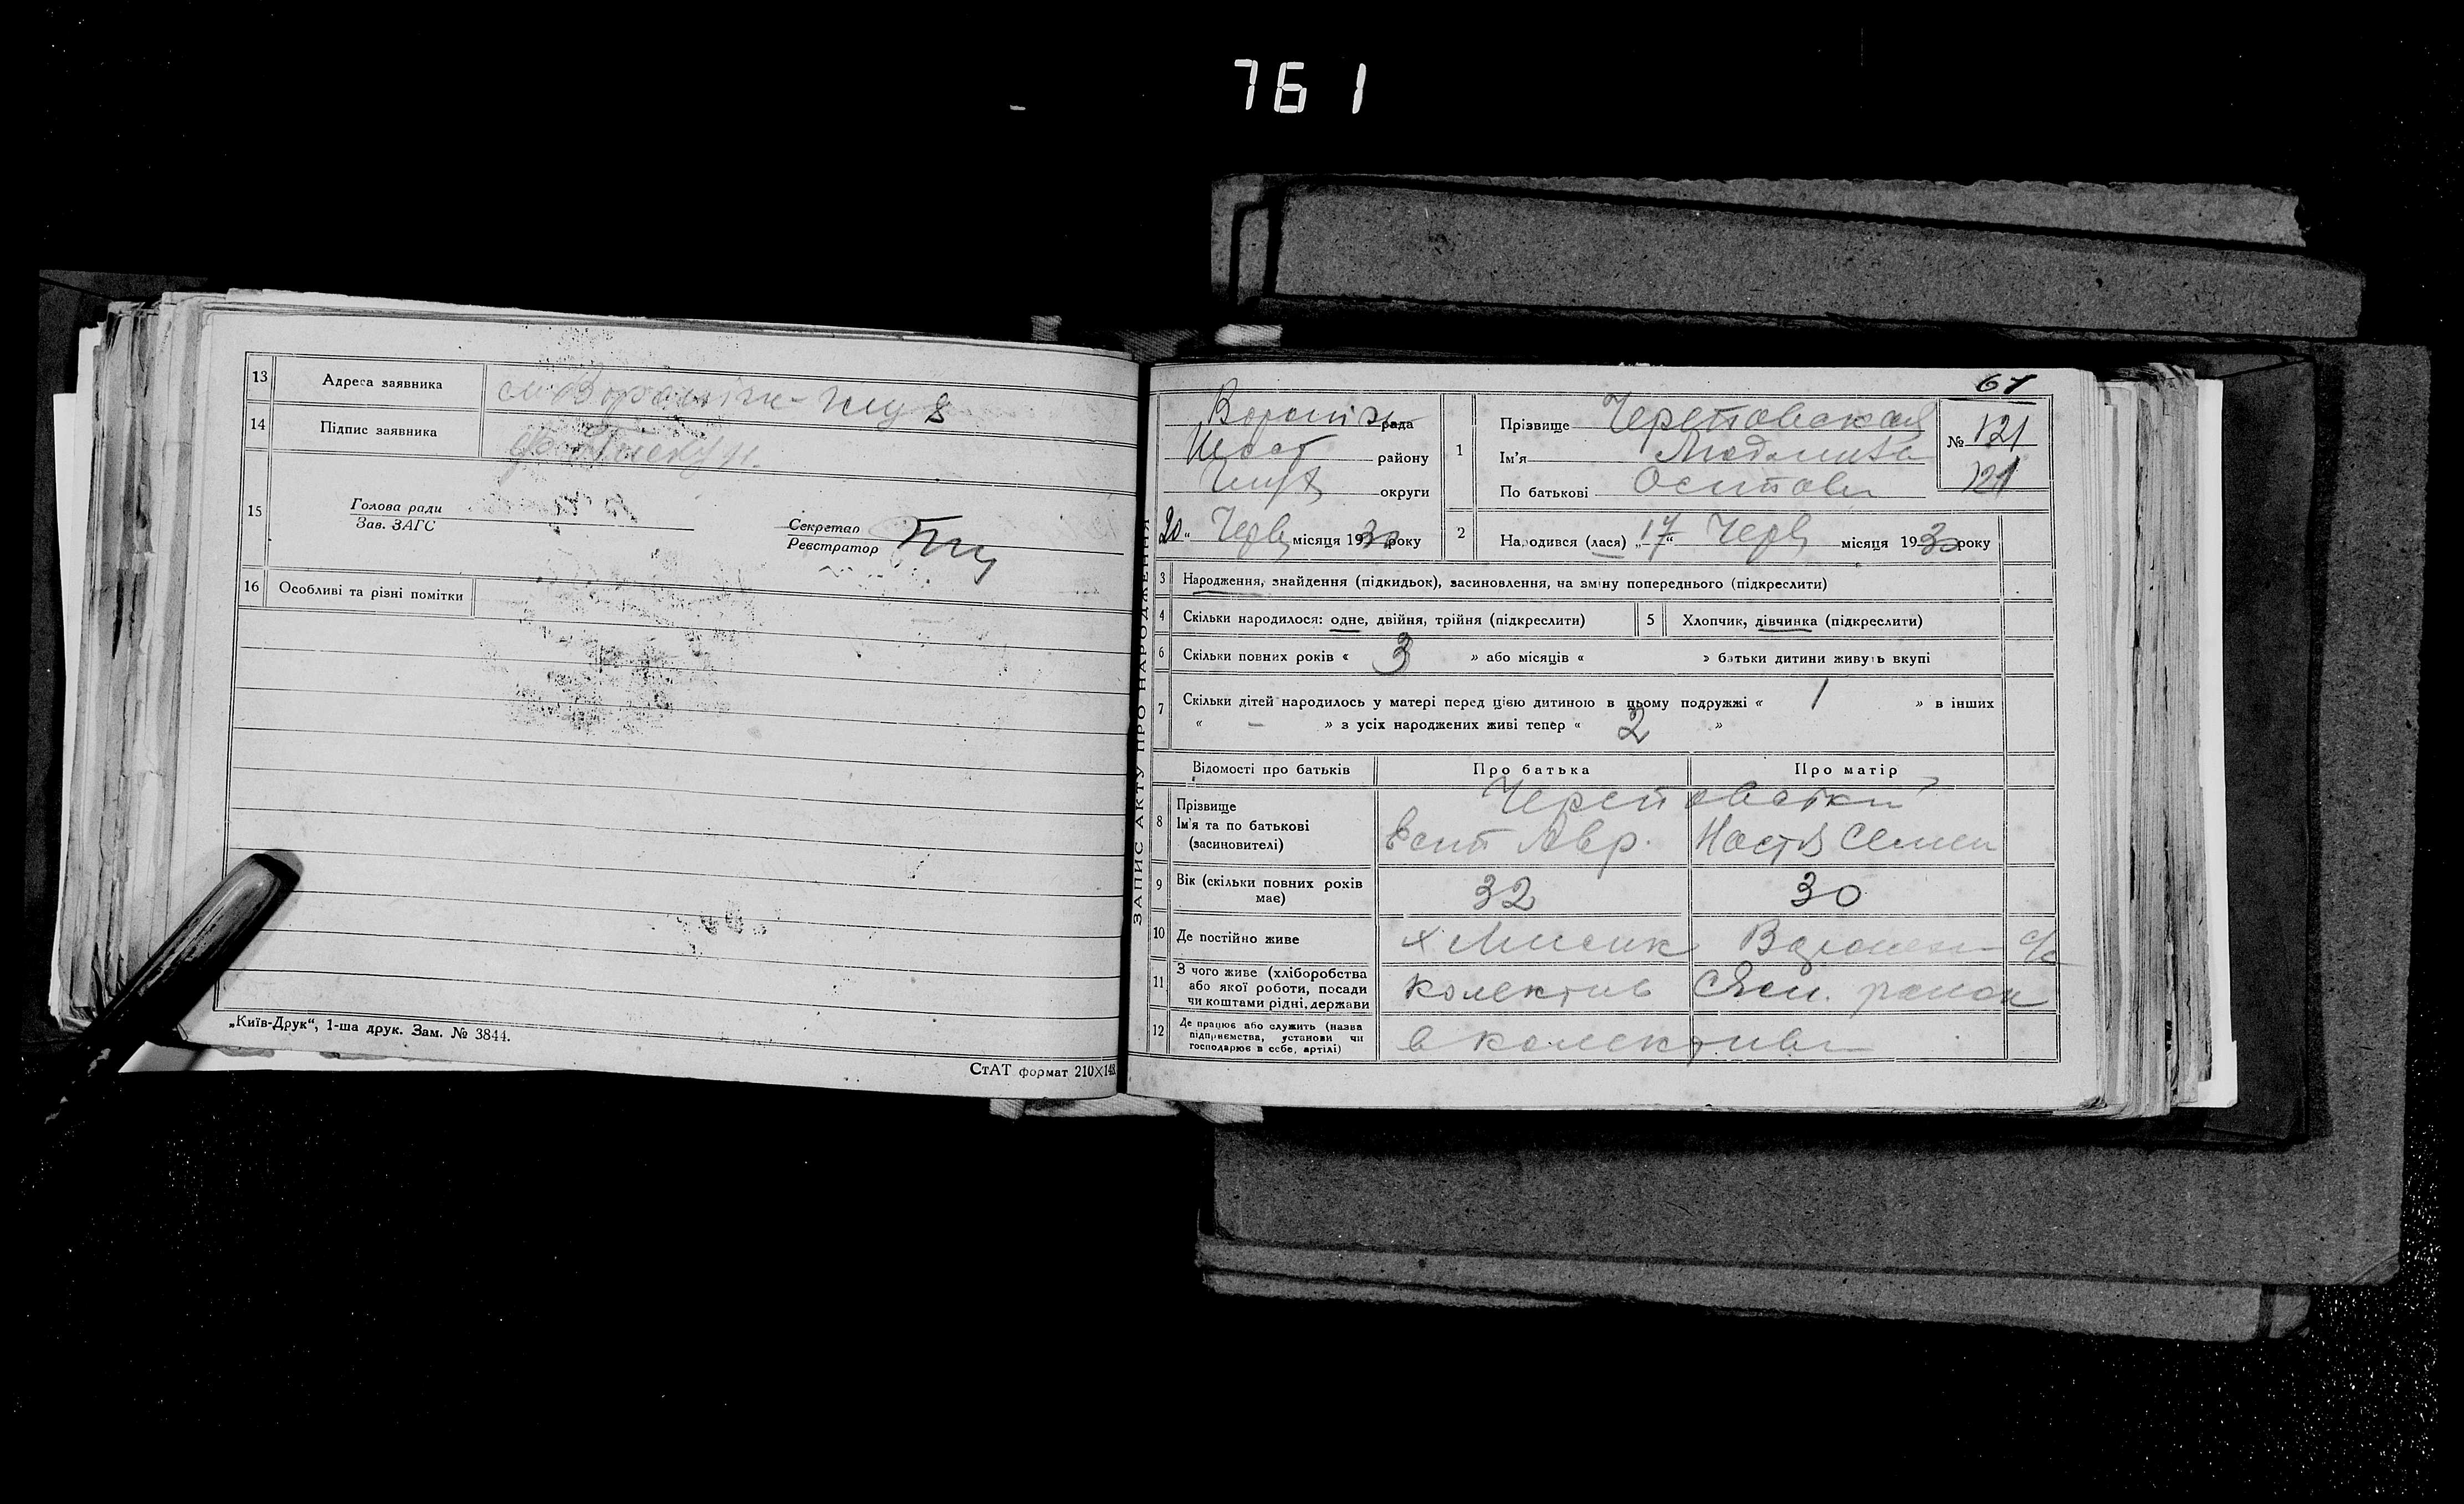 761
13 Адреса заявника
14 Підпис заявника
15 Голова ради
Зав. ЗАГС
Секретар
Реєстратор
16 Особливі та різні помітки
„Київ-Друк“, 1-ша друк. Зам. № 3844.
СтАТ формат 210×148
ЗАПИС АКТУ ПРО НАРОДЖЕННЯ
67
Вороніж рада
району
округи
20 „ Черв місяця 1930 року
1 Прізвище Череповская
Ім'я Людмила
По батькові Осиповн
№ 121
121
2 Народився (лася) „17“ Черв місяця 1930 року
3 Народження, знайдення (підкидьок), засиновлення, на зміну попереднього (підкреслити)
4 Скільки народилося: одне, двійня, трійня (підкреслити)
5 Хлопчик, дівчинка (підкреслити)
6 Скільки повних років « 3 » або місяців « » батьки дитини живуть вкупі
7 Скільки дітей народилось у матері перед цією дитиною в цьому подружжі « 1 » в інших
« — » з усіх народжених живі тепер « 2 »
Відомості про батьків
Про батька
Про матір
8 Прізвище
Ім'я та по батькові
(засиновителі)
Осип Авр. Настя Семен
9 Вік (скільки повних років
має)
32 30
10 Де постійно живе
11 З чого живе (хліборобства
або якої роботи, посади
чи коштами рідні, держави
колектив
12 Де працює або служить (назва
підприємства, установи чи
господарює в себе, артілі)
в колективі